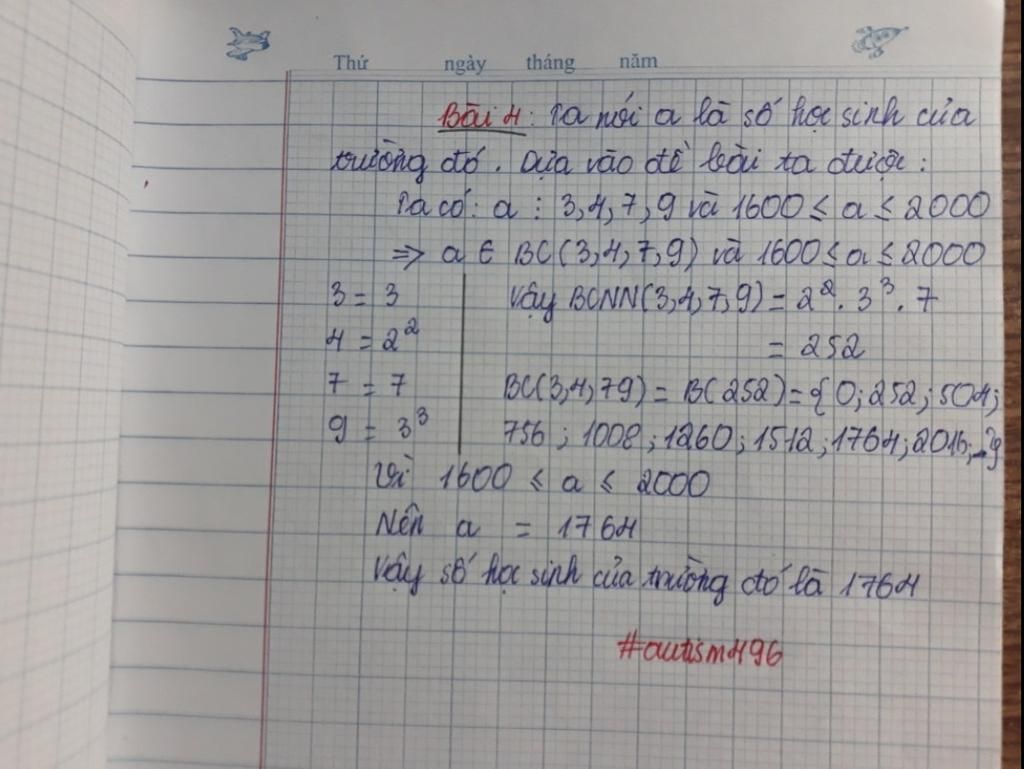 Thứ ngày tháng năm
Bài 4: Ta nói a là số học sinh của
trường đó. Dựa vào đề bài ta được:
Ta có: a ⋮ 3,4,7,9 và 1600 ≤ a ≤ 2000
=> a ∈ BC(3,4,7,9) và 1600 ≤ a ≤ 2000
3 = 3 Vậy BCNN(3,4,7,9) = 2² . 3³ . 7
4 = 2² = 252
7 = 7 BC(3,4,79) = B(252) = {0; 252; 504;
9 = 3³ 756; 1008; 1260; 1512; 1764; 2016; ...}
Vì 1600 ≤ a ≤ 2000
Nên a = 1764
Vậy số học sinh của trường đó là 1764
#autism496